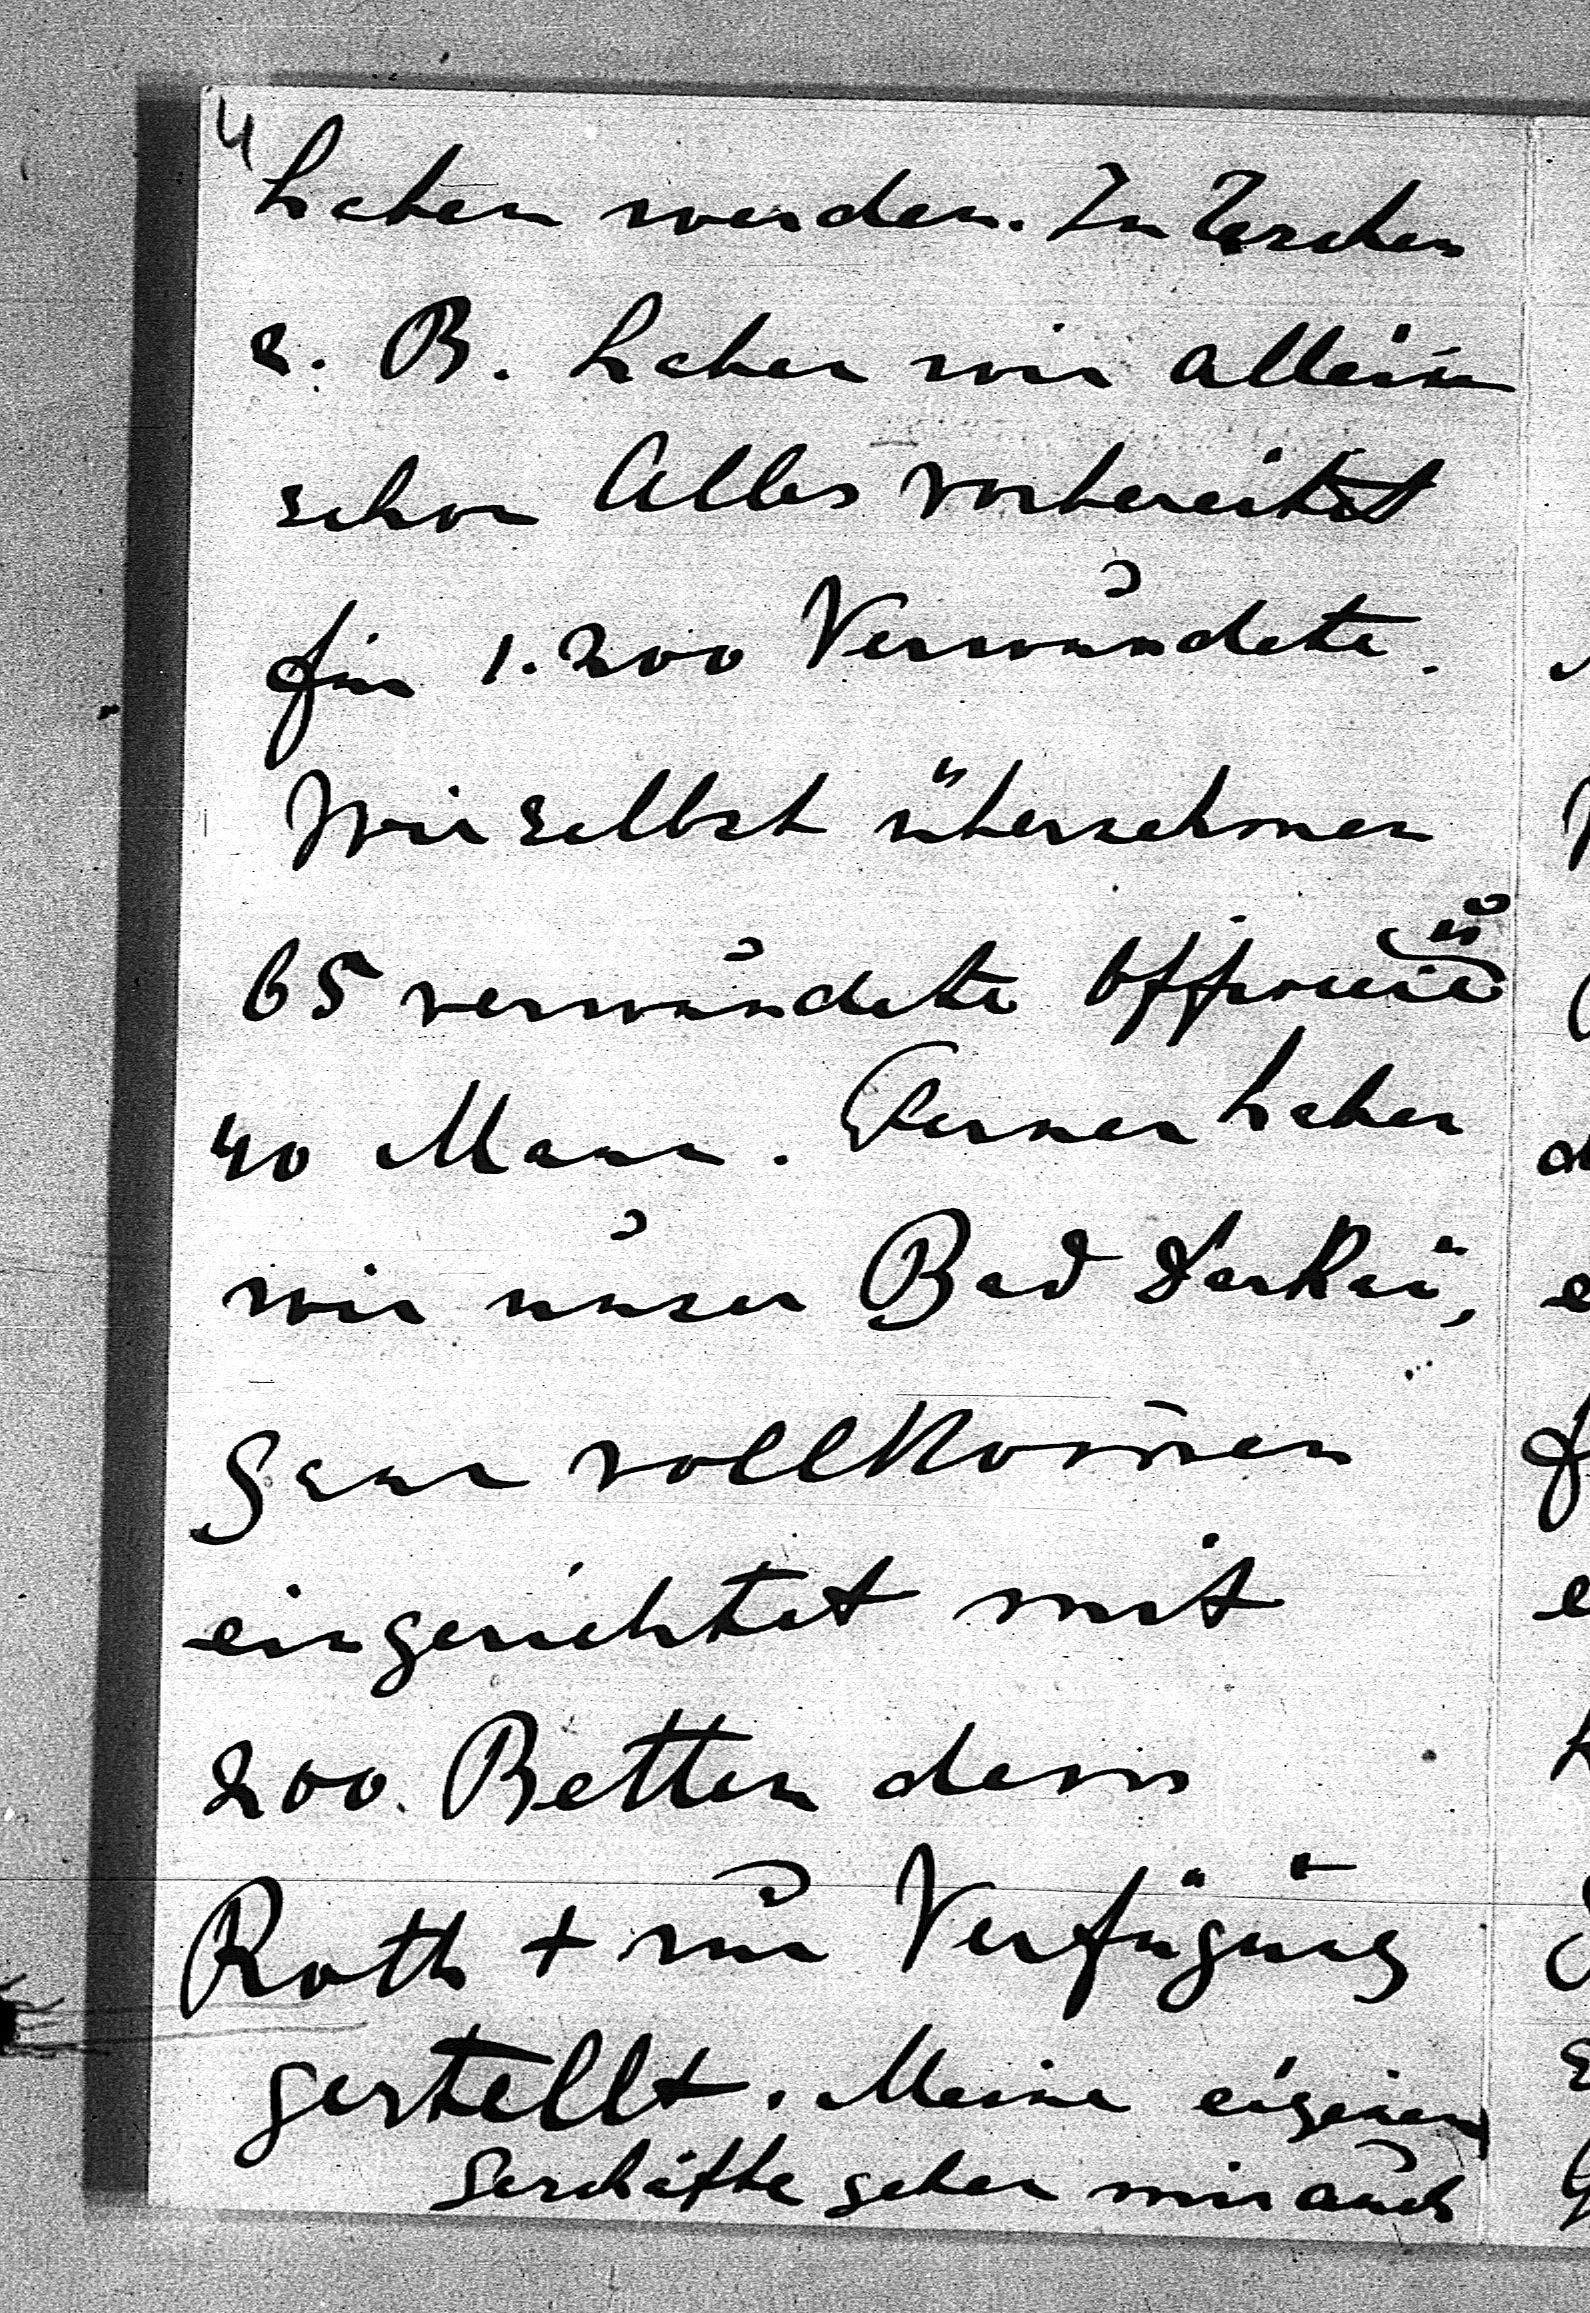 4
haben werden. In Teschen
z. B. haben wir allein
schon Alles vorbereitet
für 1.200 Verwundete.
Wir selbst übernehmen
65 verwundete Offiziere
40 Mann. Ferner haben
wir unser Bad Darkau,
ganz vollkom̄en
eingerichtet mit
200 Betten dem
Roth + zur Verfügung
gestellt. Meine eigenen
Geschäfte geben mir auch